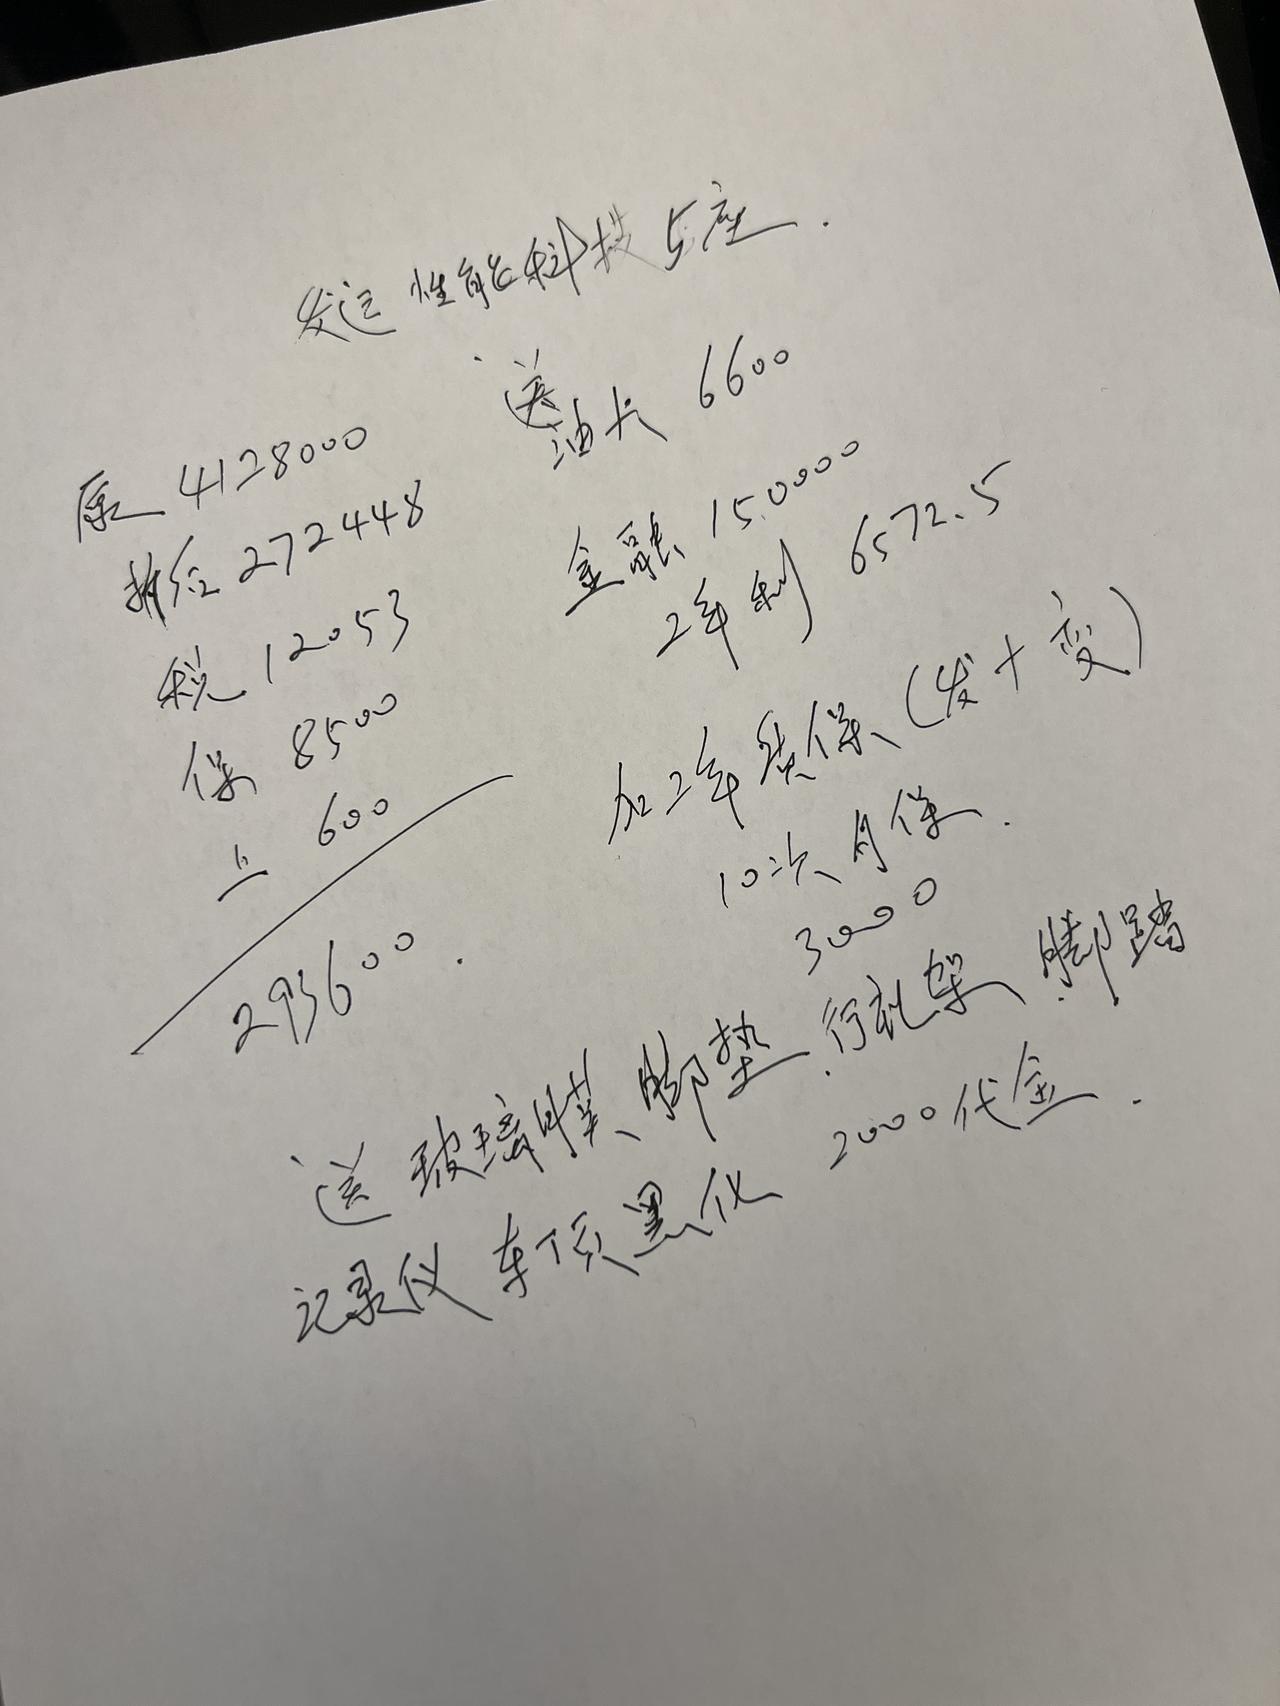 发运 性能科技 5座.
送
油卡 6600
原 4128000
折后 272448
税 12053
保 8500
上 600
293600.
金融 150000
2年利 6572.5
加2年质保 (发+变)
10次月保.
3000
送 玻璃膜、脚垫、行礼架、脚踏
记录仪 车顶黑化 2000代金.